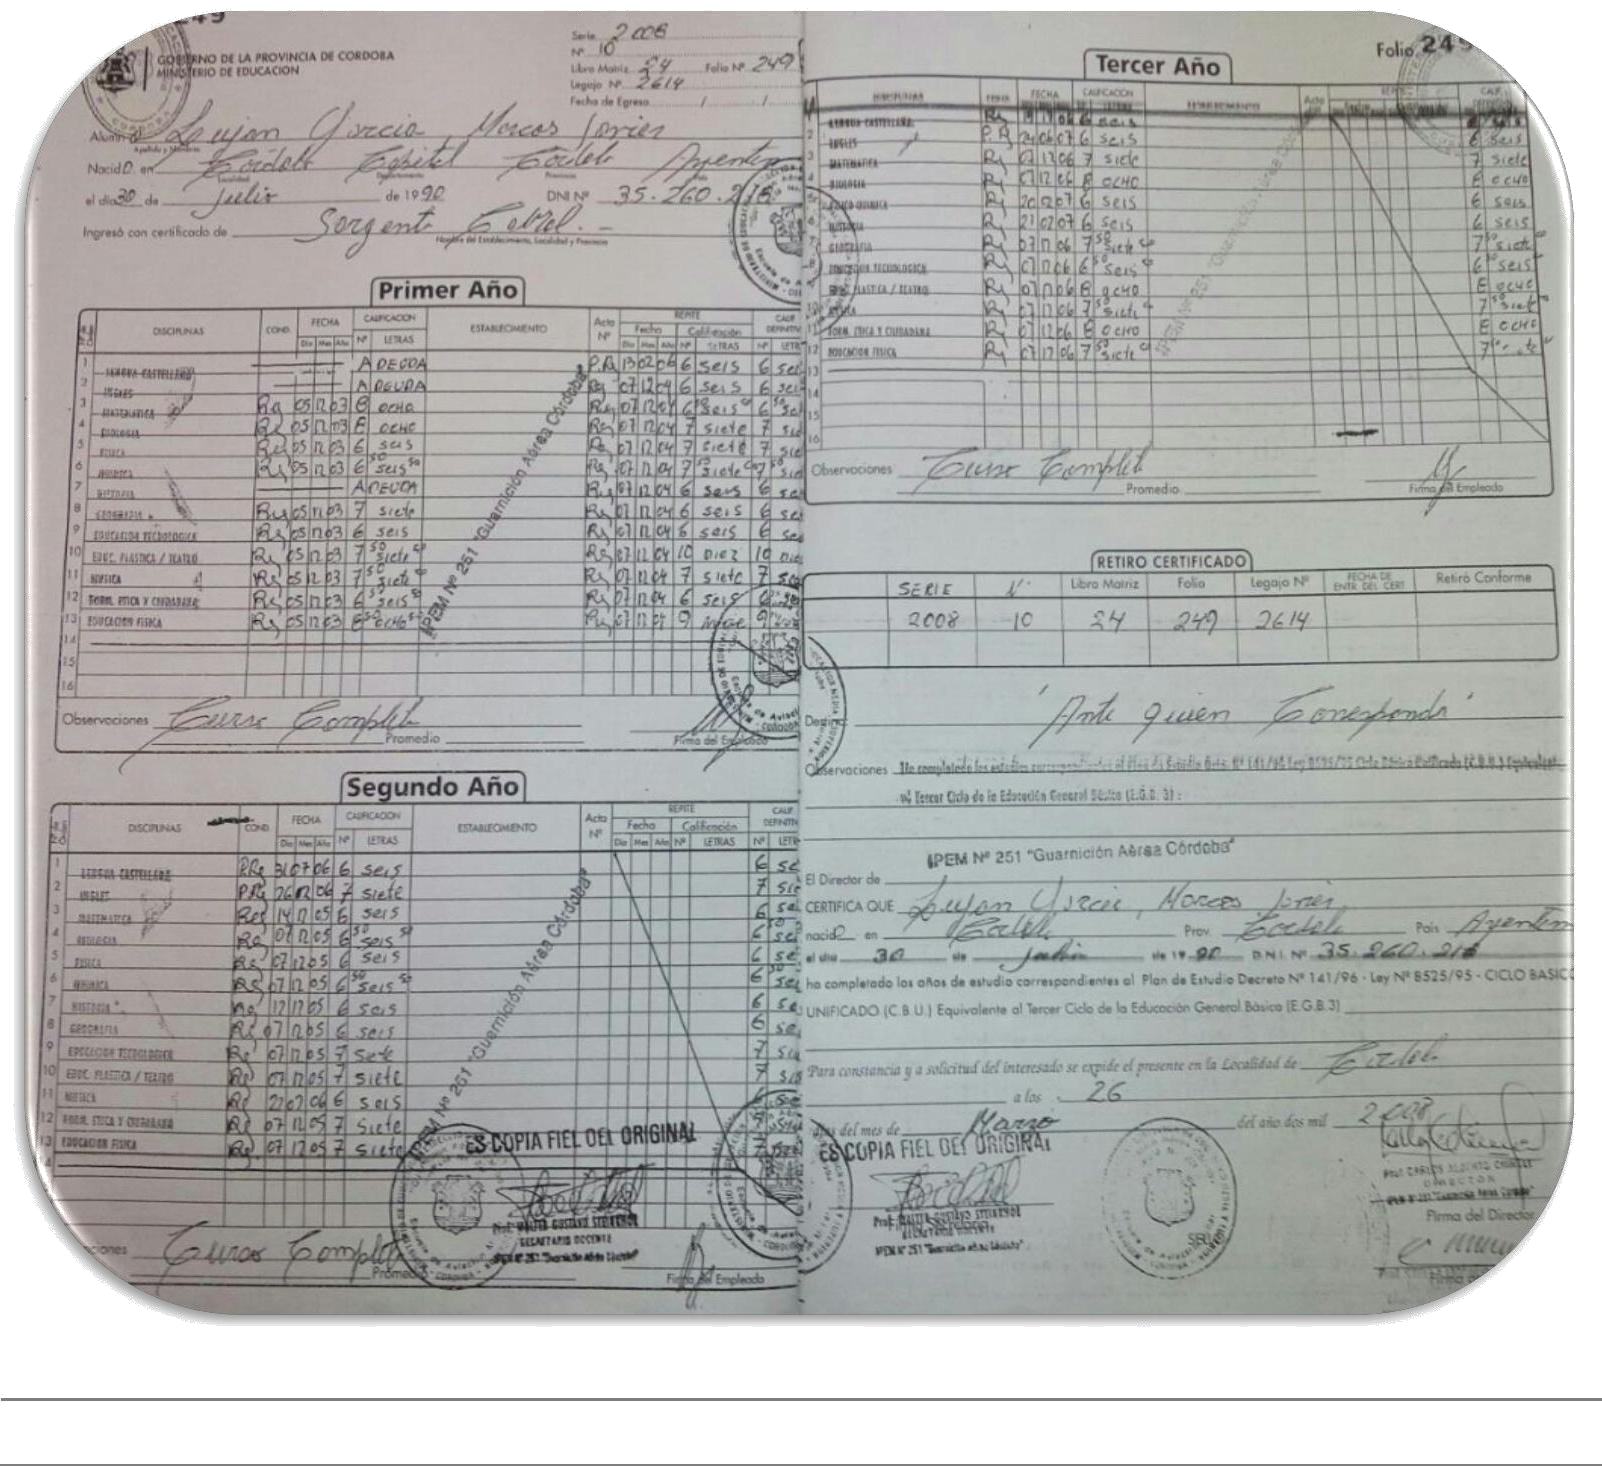 GOBIERNO DE LA PROVINCIA DE CORDOBA
MINISTERIO DE EDUCACION
Serie 2008
Nº 10
Libro Matriz 24 Folio Nº 249
Legajo Nº 2614
Fecha de Egreso / /
Lujan Garcia, Marcos Javier
Apellido y Nombres
Nacido en Cordoba Capital Cordoba Argentin
Localidad Departamento Provincia País
el día 30 de Julio de 1990 DNI Nº 35.260.216
Ingresó con certificado de Sargento Cabral.-
Nombre del Establecimiento, Localidad y Provincia
Primer Año
DISCIPLINAS COND. FECHA CALIFICACION ESTABLECIMIENTO Acta Nº REPITE CALIF. DEFINITIV
Día Mes Año Nº LETRAS Fecha Calificación
Día Mes Año Nº LETRAS Nº LETR
IPEM Nº 251 "Guarnición Aérea Córdoba"
1 LENGUA CASTELLANA ADEUDA P.R 13 02 06 6 seis 6 sei
2 INGLES ADEUDA Re 07 12 04 6 seis 6 sei
3 MATEMATICA Re 05 12 03 8 ocho Re 07 12 04 6 50 seis 50 6 50
4 BIOLOGIA Re 05 12 03 8 ocho Re 07 12 04 7 siete 7
5 FISICA Re 05 12 03 6 seis Re 07 12 04 7 siete 7
6 QUIMICA Re 05 12 03 6 50 seis 50 Re 07 12 04 7 50 siete 50 7 50
7 HISTORIA ADEUDA Re 07 12 04 6 seis 6
8 GEOGRAFIA Re 05 12 03 7 siete Re 07 12 04 6 seis 6
9 EDUCACION TECNOLOGICA Re 05 12 03 6 seis Re 07 12 04 6 seis 6
10 EDUC. PLASTICA / TEATRO Re 05 12 03 7 50 siete 50 Re 07 12 04 10 Diez 10 Die
11 MUSICA Re 05 12 03 7 50 siete 50 Re 07 12 04 7 siete 7
12 FORM. ETICA Y CIUDADANA Re 05 12 03 6 50 seis 50 Re 07 12 04 6 seis 6
13 EDUCACION FISICA Re 05 12 03 8 50 ocho 50 Re 07 12 04 9 nueve 9
14
15
16
Observaciones Curso Completo
Promedio Firma del Empleado
Segundo Año
DISCIPLINAS COND. FECHA CALIFICACION ESTABLECIMIENTO Acta Nº REPITE CALIF. DEFINITIV
Día Mes Año Nº LETRAS Fecha Calificación
Día Mes Año Nº LETRAS Nº LETR
IPEM Nº 251 "Guarnición Aérea Córdoba"
1 LENGUA CASTELLANA P.Re 31 07 06 6 seis 6 se
2 INGLES P.Re 26 12 06 7 siete 7 sie
3 MATEMATICA Re 14 12 05 6 seis 6 sei
4 BIOLOGIA Re 07 12 05 6 50 seis 50 6 50
5 FISICA Re 07 12 05 6 seis 6 se
6 QUIMICA Re 07 12 05 6 50 seis 50 6 50
7 HISTORIA Re 12 12 05 6 seis 6 se
8 GEOGRAFIA Re 07 12 05 6 seis 6 se
9 EDUCACION TECNOLOGICA Re 07 12 05 7 siete 7
10 EDUC. PLASTICA / TEATRO Re 07 12 05 7 siete 7
11 MUSICA Re 22 02 06 6 seis
12 FORM. ETICA Y CIUDADANA Re 07 12 05 7 siete
13 EDUCACION FISICA Re 07 12 05 7 siete
ES COPIA FIEL DEL ORIGINAL
Prof. WALTER GUSTAVO
SECRETARIO DOCENTE
IPEM Nº 251 "Guarnición Aérea Córdoba"
Curso Completo
Promedio Firma del Empleado
Folio 249
Tercer Año
DISCIPLINAS FECHA CALIFICACION ESTABLECIMIENTO Acta REPITE CALIF.
IPEM Nº 251 "Guarnición Aérea Córdoba"
LENGUA CASTELLANA Re 12 06 6 seis 6 seis
2 INGLES P.R 24 06 07 6 seis 6 seis
3 MATEMATICA Re 07 12 06 7 siete 7 siete
4 BIOLOGIA Re 07 12 06 8 ocho 8 ocho
5 FISICO-QUIMICA Re 20 02 07 6 seis 6 seis
6 HISTORIA Re 21 02 07 6 seis 6 seis
7 GEOGRAFIA Re 07 12 06 7 50 siete 50 7 50 siete 50
8 EDUCACION TECNOLOGICA Re 07 12 06 6 50 seis 50 6 50 seis 50
9 EDUC. PLASTICA / TEATRO Re 07 12 06 8 ocho 8 ocho
10 MUSICA Re 07 12 06 7 50 siete 50 7 50 siete 50
11 FORM. ETICA Y CIUDADANA Re 07 12 06 8 ocho 8 ocho
12 EDUCACION FISICA Re 07 12 06 7 50 siete 50 7
13
14
15
16
Observaciones Curso Completo
Promedio Firma del Empleado
RETIRO CERTIFICADO
SERIE Nº Libro Matriz Folio Legajo Nº FECHA DE ENTR. DEL CERT. Retiró Conforme
2008 10 24 249 2614
Destino: "Ante quien Corresponda"
Observaciones Ha completado los estudios correspondientes al Plan de Estudio Dcto. Nº 141/96 Ley 8525/95 Ciclo Básico Unificado (C.B.U.) Equivalente
al Tercer Ciclo de la Educación General Básica (E.G.B. 3) :
IPEM Nº 251 "Guarnición Aérea Córdoba"
El Director de
CERTIFICA QUE Lujan Garcia, Marcos Javier
nacido en Cordoba Prov. Cordoba País Argentin
el día 30 de Julio de 19 90 D.N.I. Nº 35.260.216
ha completado los años de estudio correspondientes al Plan de Estudio Decreto Nº 141/96 - Ley Nº 8525/95 - CICLO BASICO
UNIFICADO (C.B.U.) Equivalente al Tercer Ciclo de la Educación General Básica (E.G.B.3)
Para constancia y a solicitud del interesado se expide el presente en la Localidad de Cordoba
a los 26
días del mes de Marzo del año dos mil 2008
ES COPIA FIEL DEL ORIGINAL
Prof. WALTER GUSTAVO
SECRETARIO DOCENTE
IPEM Nº 251 "Guarnición Aérea Córdoba"
SELLO
Prof. CARLOS ALBERTO
DIRECTOR
IPEM Nº 251 "Guarnición Aérea Córdoba"
Firma del Director